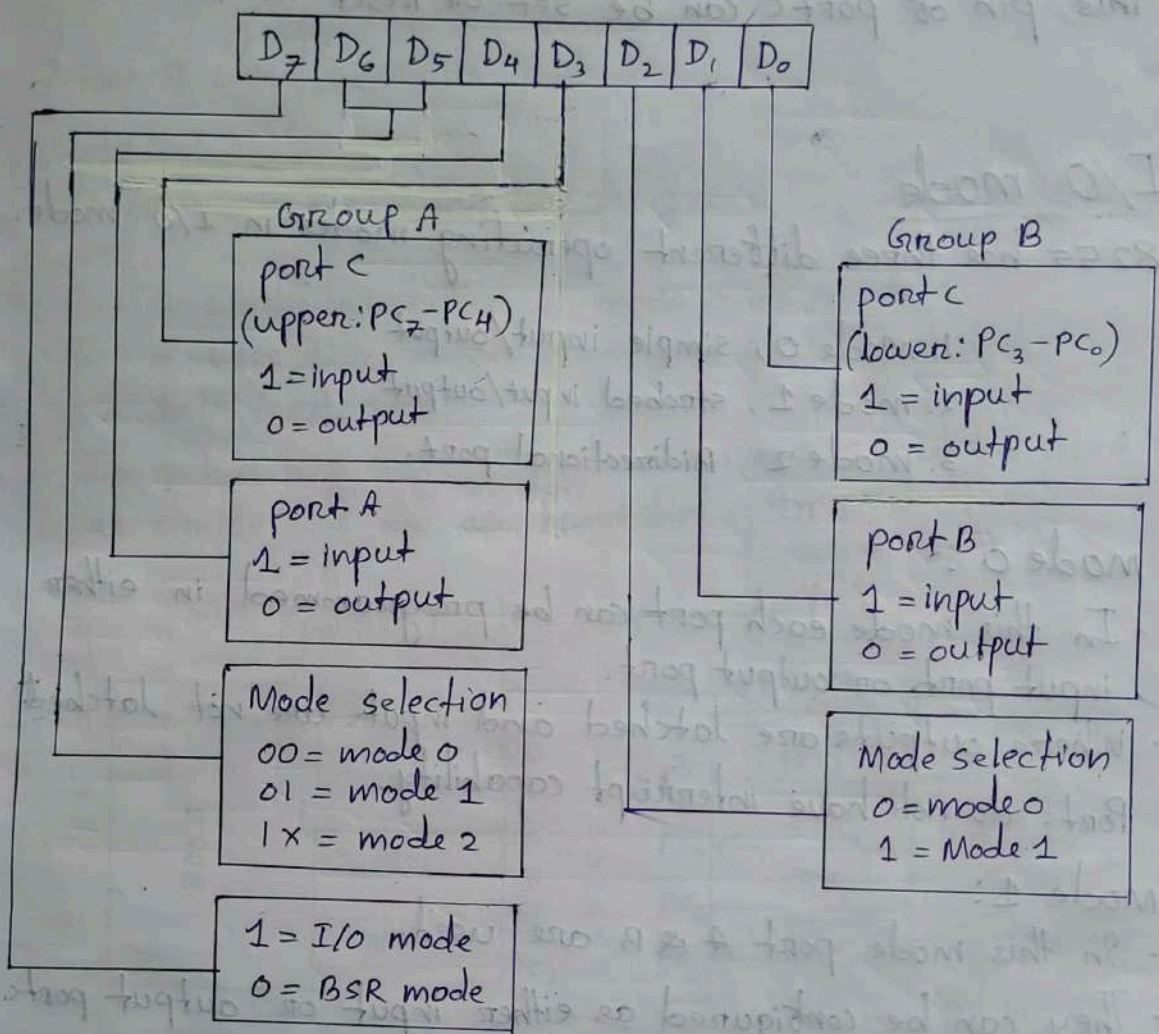 D7 D6 D5 D4 D3 D2 D1 D0
Group A
port C
(upper: PC7-PC4)
1 = input
0 = output
port A
1 = input
0 = output
Mode selection
00 = mode 0
01 = mode 1
1X = mode 2
1 = I/O mode
0 = BSR mode
Group B
port C
(lower: PC3-PC0)
1 = input
0 = output
port B
1 = input
0 = output
Mode selection
0 = mode 0
1 = Mode 1